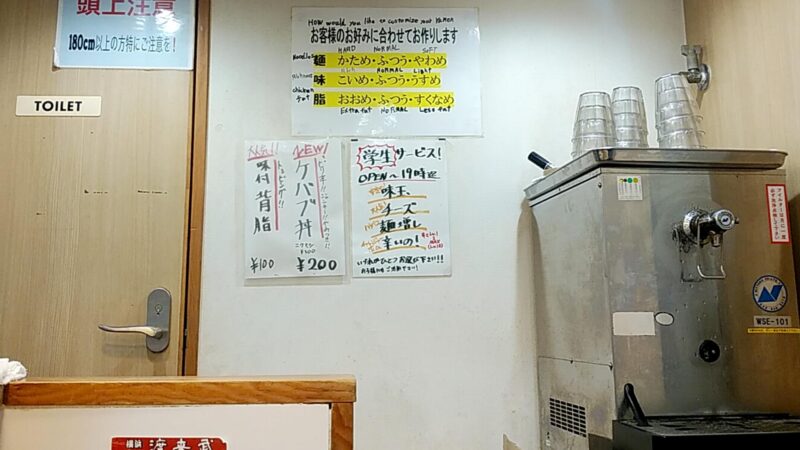 頭上注意
180cm以上の方特にご注意を!
TOILET
How would you like to customize your Ramen
お客様のお好みに合わせてお作りします
HARD NORMAL SOFT
Noodles 麺 かため・ふつう・やわめ
NORMAL Light
味 こいめ・ふつう・うすめ
chicken fat 脂 おおめ・ふつう・すくなめ
Extra fat NORMAL Less fat
NEW!
ケバブ丼
¥200
大人気!!
味付背脂
トッピング!!
¥100
学生サービス!
OPEN〜19時迄
味玉
チーズ
麺増し
辛いの!
いずれかひとつお選び下さい!!!
WSE-101
横浜
渡来武